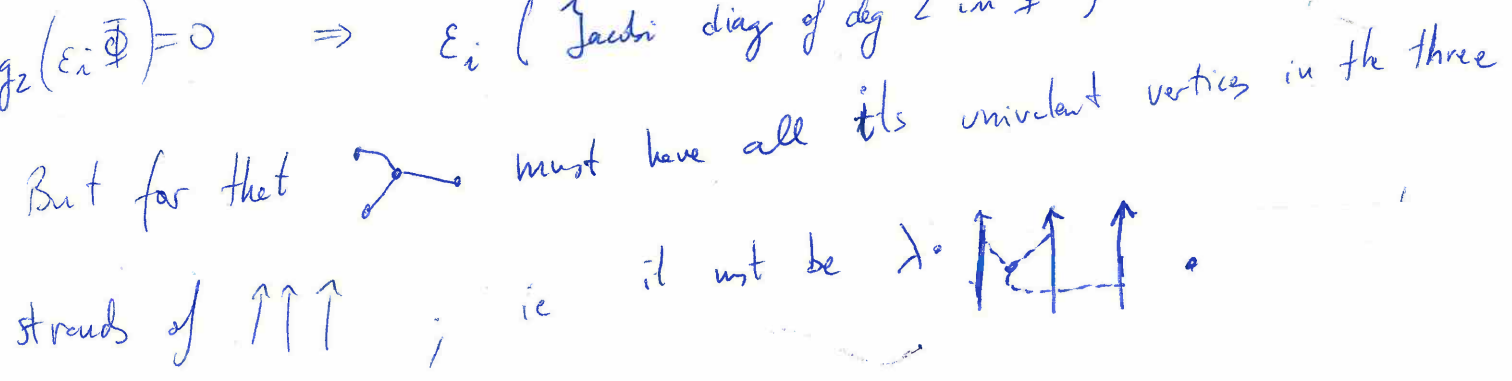 g₂(εᵢ Φ) = 0 ⇒ εᵢ ( Jacobi diag of deg 2 in
But for that must have all its univalent vertices in the three
strands of ↑↑↑ ; ie it mst be λ· .